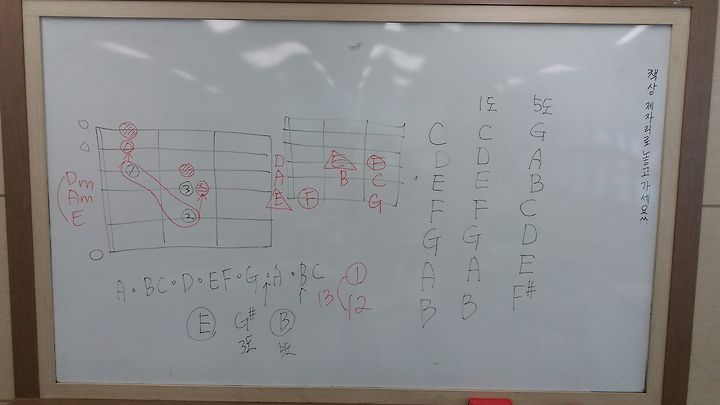 Dm
Am
E
①
③
②
D
A
E
E
B
C
G
F
A • B C • D • E F • G • A • B C
①
13
12
E G# B
3도 5도
1도 5도
C C G
D D A
E E B
F F C
G G D
A A E
B B F#
책상 제자리로 놓고 가세요!!